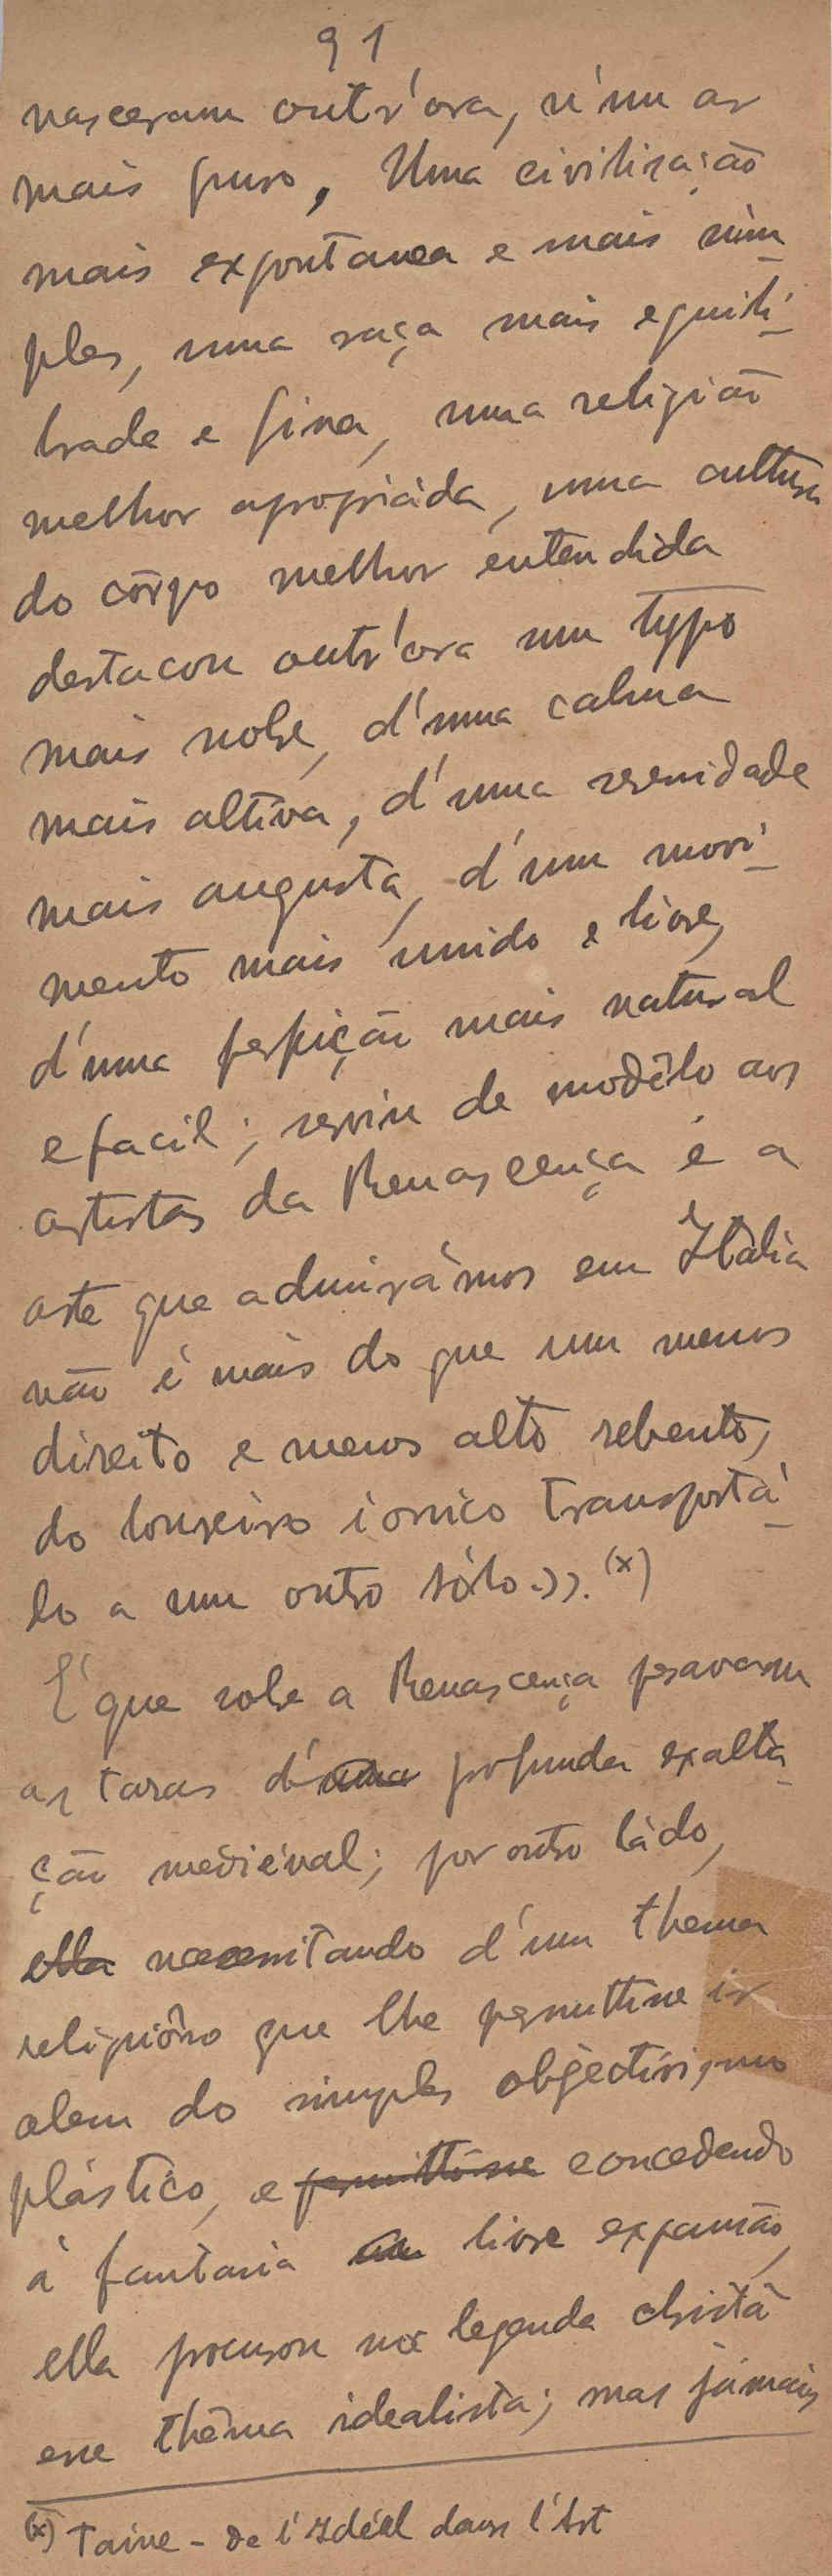 91
nasceram outr'ora, n'um ar
mais puro, Uma civilisação
mais expontanea e mais sim-
ples, uma raça mais equili-
brada e fina, uma religião
melhor apropriáda, uma cultura
do côrpo melhor entendida
destacou outr'ora um typo
mais nobre, d'uma calma
mais altiva, d'uma serenidade
mais augusta, d'um movi-
mento mais unido e livre,
d'uma perfeição mais natural
e facil; serviu de modêlo aos
artistas da Renascença e a
arte que admirámos em Itália
não é mais do que um menos
direito e menos alto rebento,
do loureiro iónico transportá-
do a um outro sólo.»). (x)
E' que sobre a Renascença pesavam
as taras d'uma profunda exalta-
ção mediéval; por outro ládo,
ella necessitando d'um thema
religiôso que lhe permittisse ir
alem do simples objectivismo
plástico, e permittisse concedendo
á fantasia livre expansão,
ella procurou na legenda christã
esse thêma idealista; mas jámais
(x) Taine - de l'Idéal dans l'Art